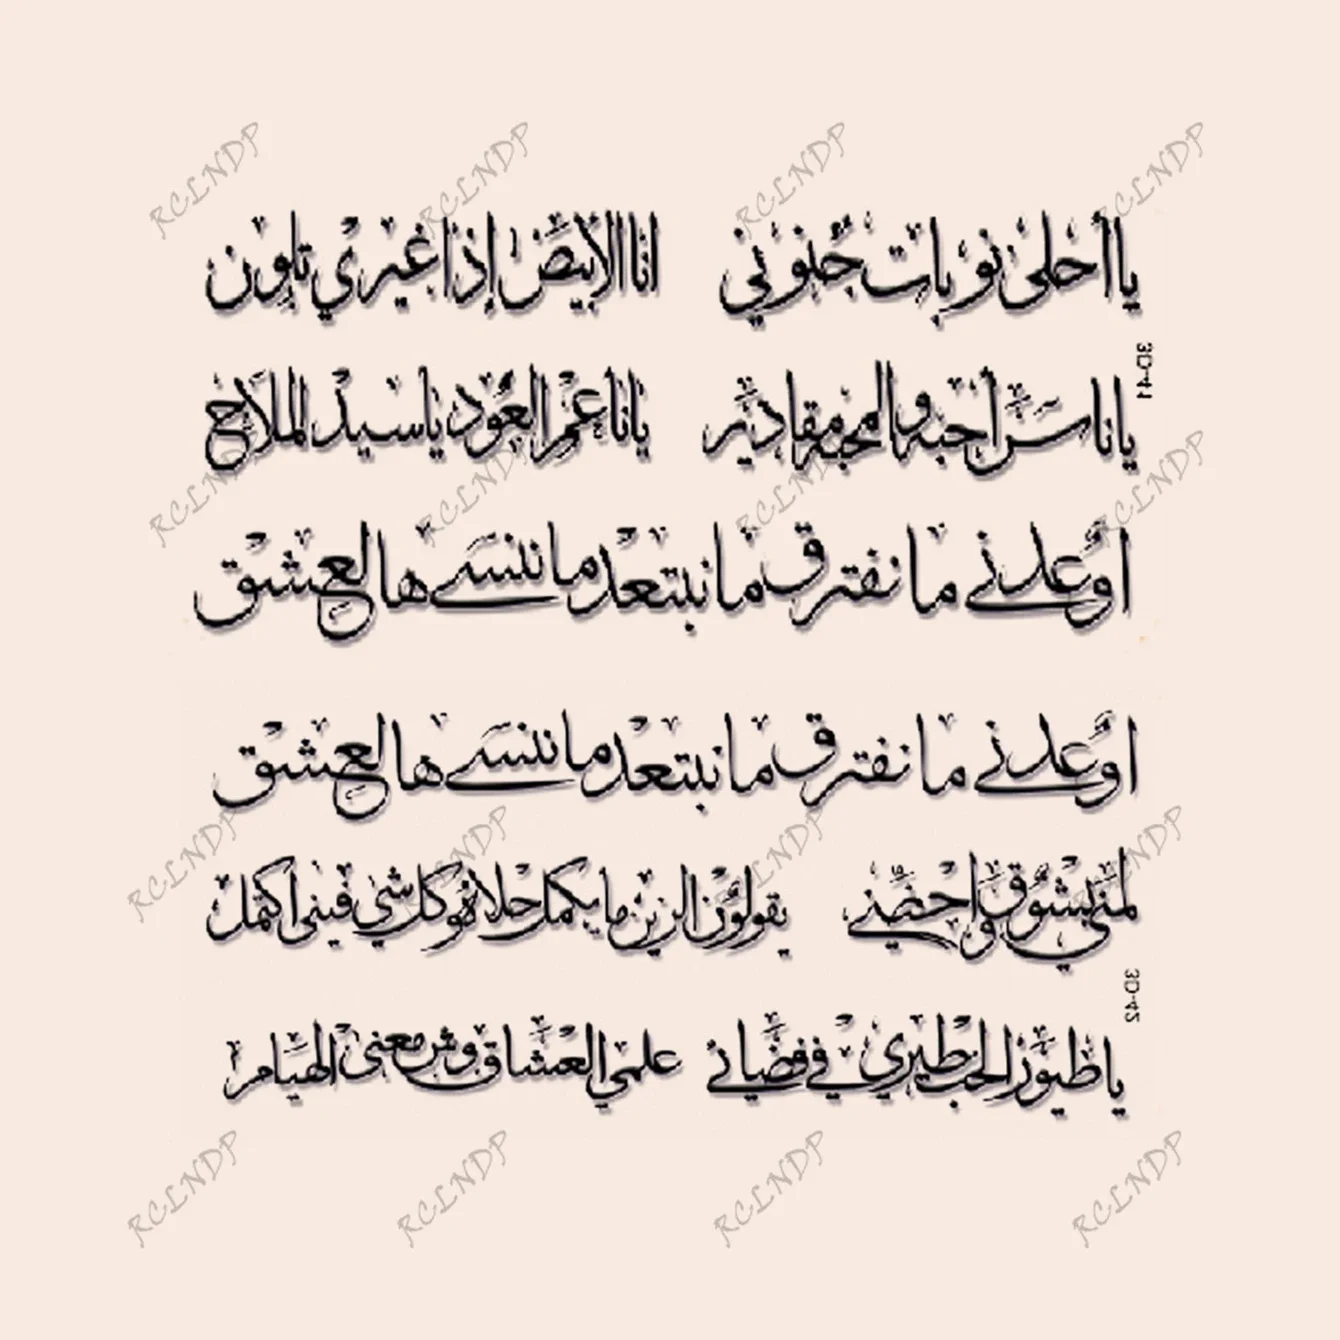 RCLNDP RCLNDP RCLNDP RCLNDP
يا أحلى نوبات جنوني انا الابيض إذا غيري تلون
3D-41
يا ناسي احبه والمحبه مقادير يا ناعم العود يا سيد الملاح
RCLNDP RCLNDP RCLNDP RCLNDP
اوعدني ما نفترق ما نبتعد ما ننسى هالعشق
اوعدني ما نفترق ما نبتعد ما ننسى هالعشق
RCLNDP RCLNDP RCLNDP RCLNDP
لمني بشوق واحضني يقولون الزين ما يكمل حلاه وكل شي فيني اكتمل
3D-42
يا طيور الحب طيري في فضائي علمي العشاق وش معنى الهيام
RCLNDP RCLNDP RCLNDP RCLNDP